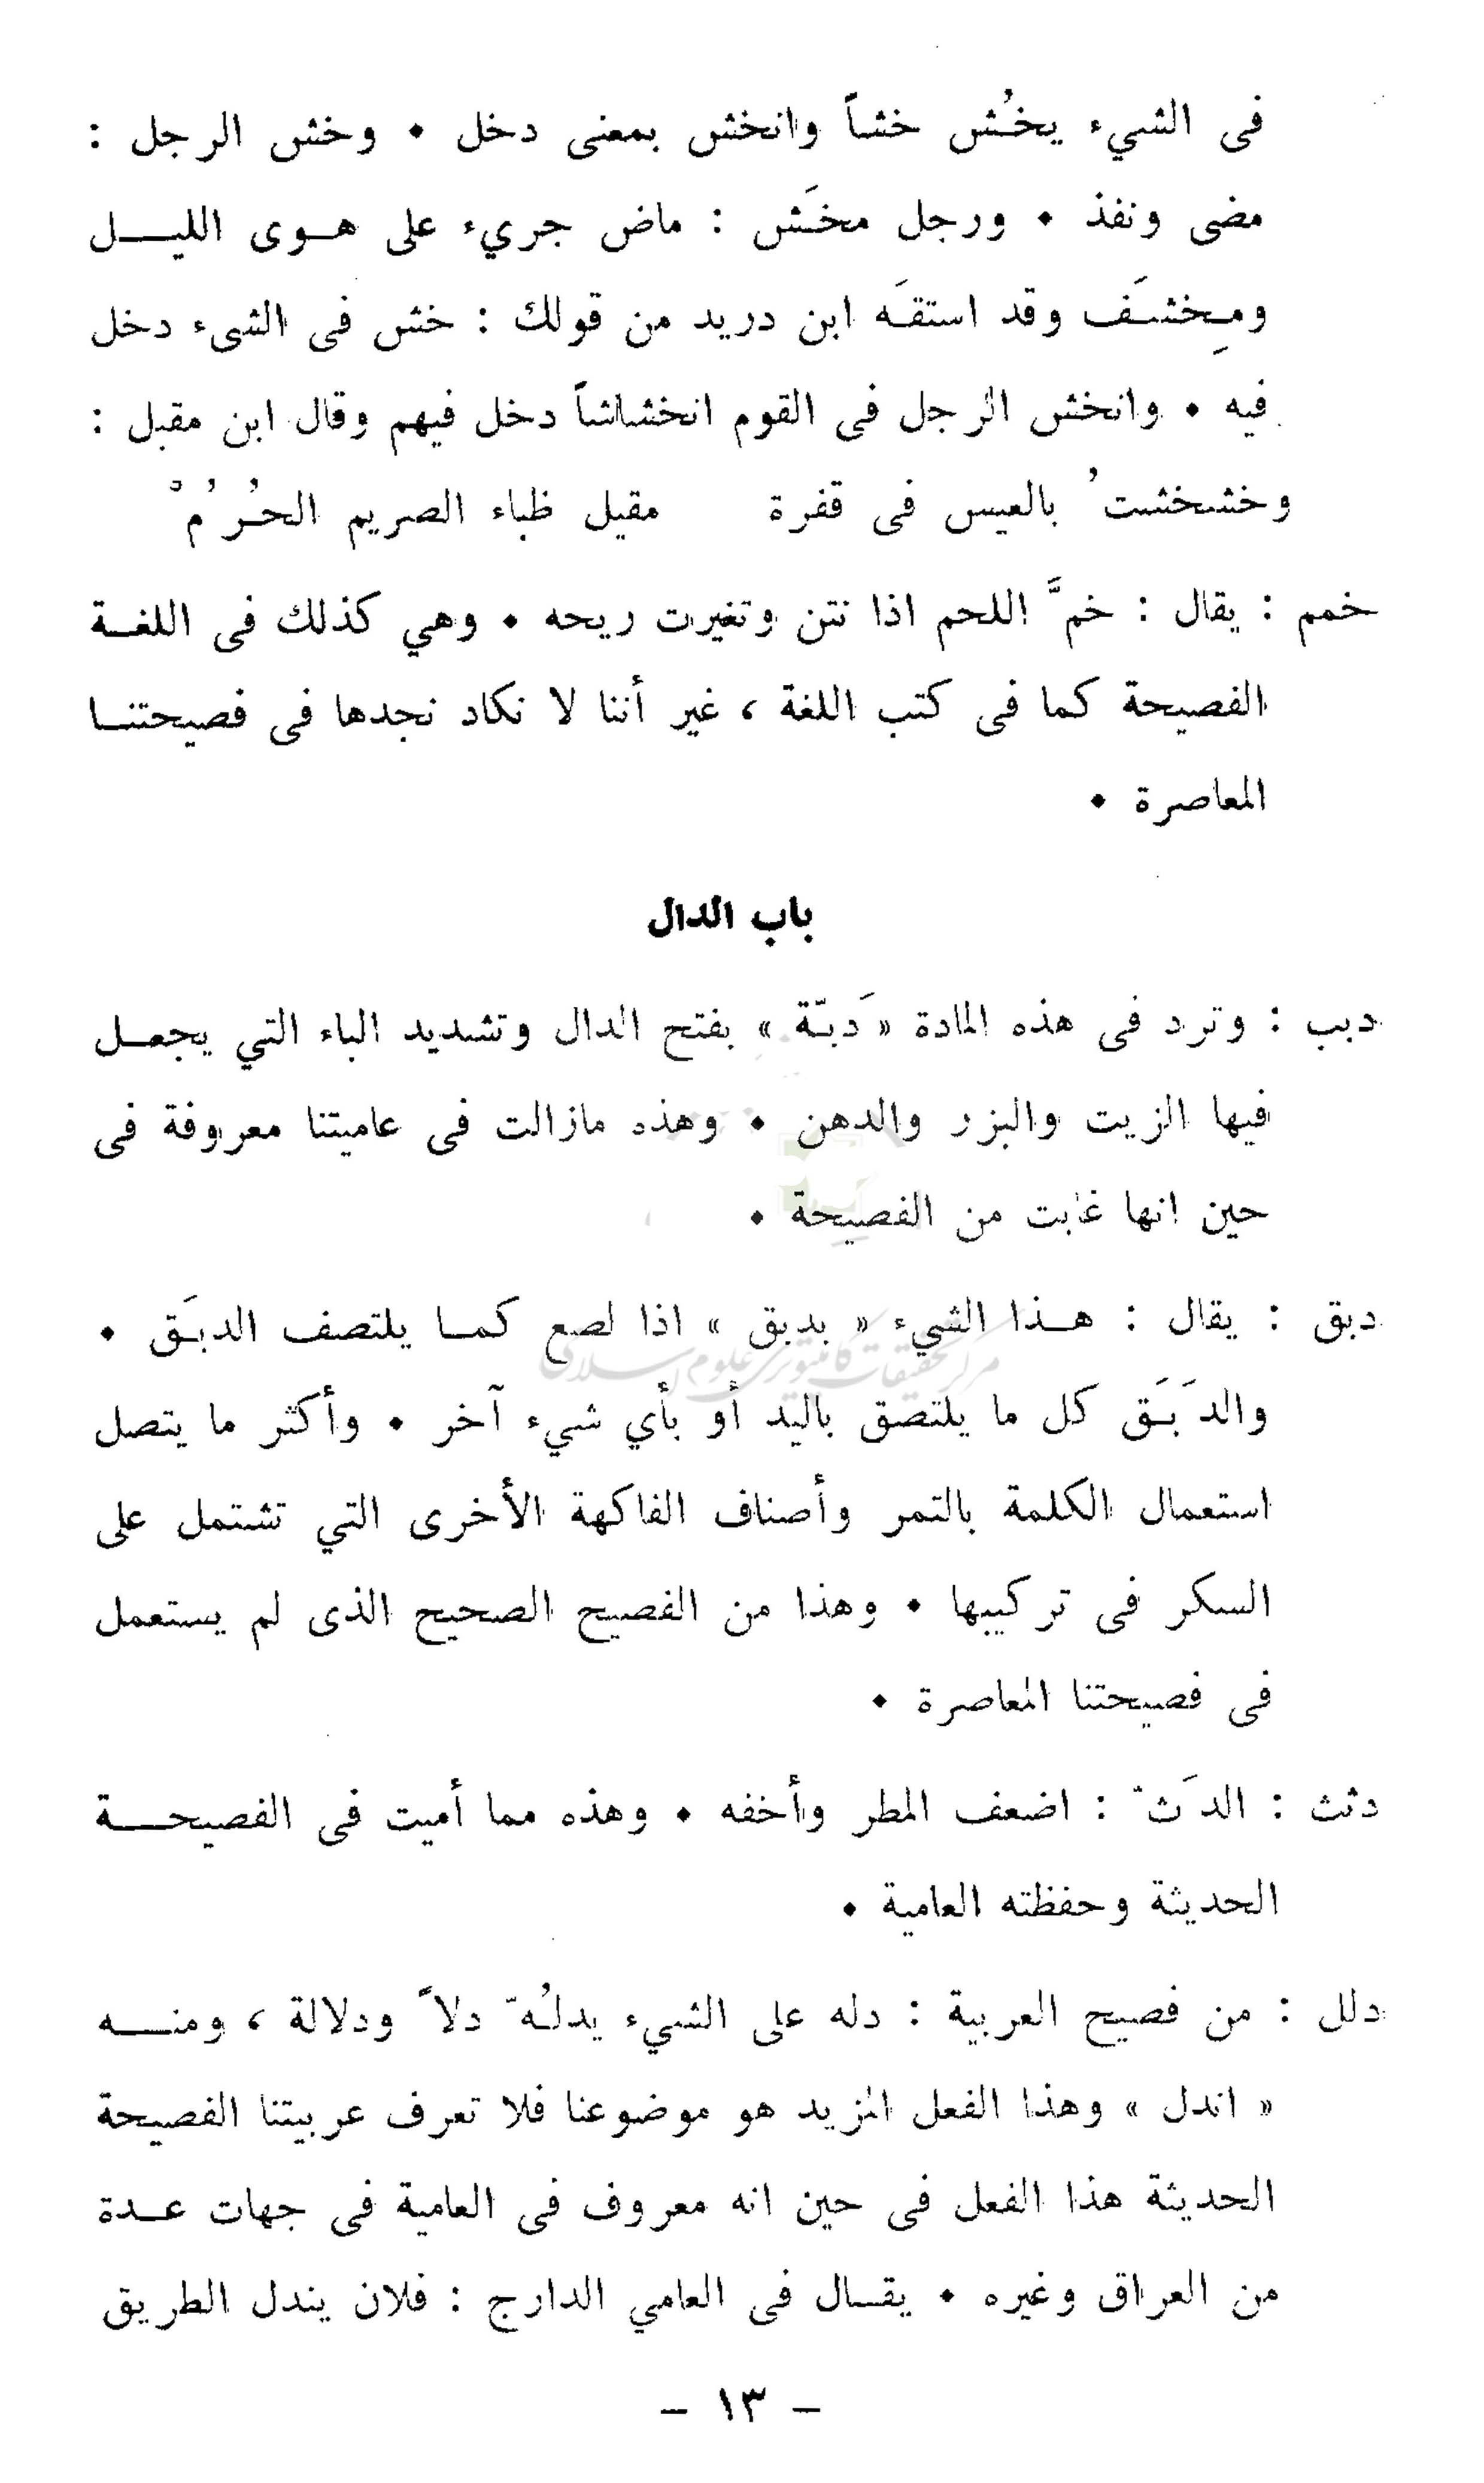 فى الشيء يخُش خشاً وانخش بمعنى دخل ٠ وخش الرجل :
مضى ونفذ ٠ ورجل مخَش : ماض جريء على هوى الليل
ومِخشَف وقد استقَه ابن دريد من قولك : خش فى الشىء دخل
فيه ٠ وانخش الرجل فى القوم انخشاشاً دخل فيهم وقال ابن مقبل :
وخشخشتُ بالعيس فى قفرة مقيل ظباء الصريم الحُرُمْ
خمم : يقال : خمَّ اللحم اذا نتن وتغيرت ريحه ٠ وهي كذلك فى اللغة
الفصيحة كما فى كتب اللغة ، غير أننا لا نكاد نجدها فى فصيحتنا
المعاصرة ٠
باب الدال
دبب : وترد فى هذه المادة « دَبّة » بفتح الدال وتشديد الباء التي يجعل
فيها الزيت والبزر والدهن ٠ وهذه مازالت فى عاميتنا معروفة فى
حين انها غابت من الفصيحة ٠
دبق : يقال : هذا الشيء « يدبق » اذا لصع كما يلتصف الدبَق ٠
مركز تحقيقات كامپيوترى علوم اسلامى
والدَبَق كل ما يلتصق باليد أو بأي شيء آخر ٠ وأكثر ما يتصل
استعمال الكلمة بالتمر وأصناف الفاكهة الأخرى التي تشتمل على
السكر فى تركيبها ٠ وهذا من الفصيح الصحيح الذى لم يستعمل
فى فصيحتنا المعاصرة ٠
دثث : الدَثّ : اضعف المطر وأخفه ٠ وهذه مما أميت فى الفصيحة
الحديثة وحفظته العامية ٠
دلل : من فصيح العربية : دله على الشيء يدلُهّ دلاً ودلالة ، ومنه
« اندل » وهذا الفعل المزيد هو موضوعنا فلا تعرف عربيتنا الفصيحة
الحديثة هذا الفعل فى حين انه معروف فى العامية فى جهات عدة
من العراق وغيره ٠ يقال فى العامي الدارج : فلان يندل الطريق
– ١٣ –